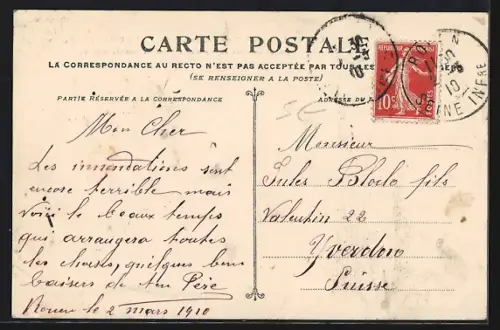 CARTE POSTALE
LA CORRESPONDANCE AU RECTO N'EST PAS ACCEPTÉE PAR TOUS LES
(SE RENSEIGNER A LA POSTE)
PARTIE RÉSERVÉE A LA CORRESPONDANCE
ADRESSE DU
10c
POSTES
ROUEN
SEINE INFRE
10
Mon Cher
Les innondations sont
encore terrible mais
voici le beaux temps
qui arrangera toutes
les choses, quelques bons
baisers de ton Père
Rouen le 2 mars 1910
Monsieur
Jules Bloch fils
Valentin 22
Yverdon
Suisse